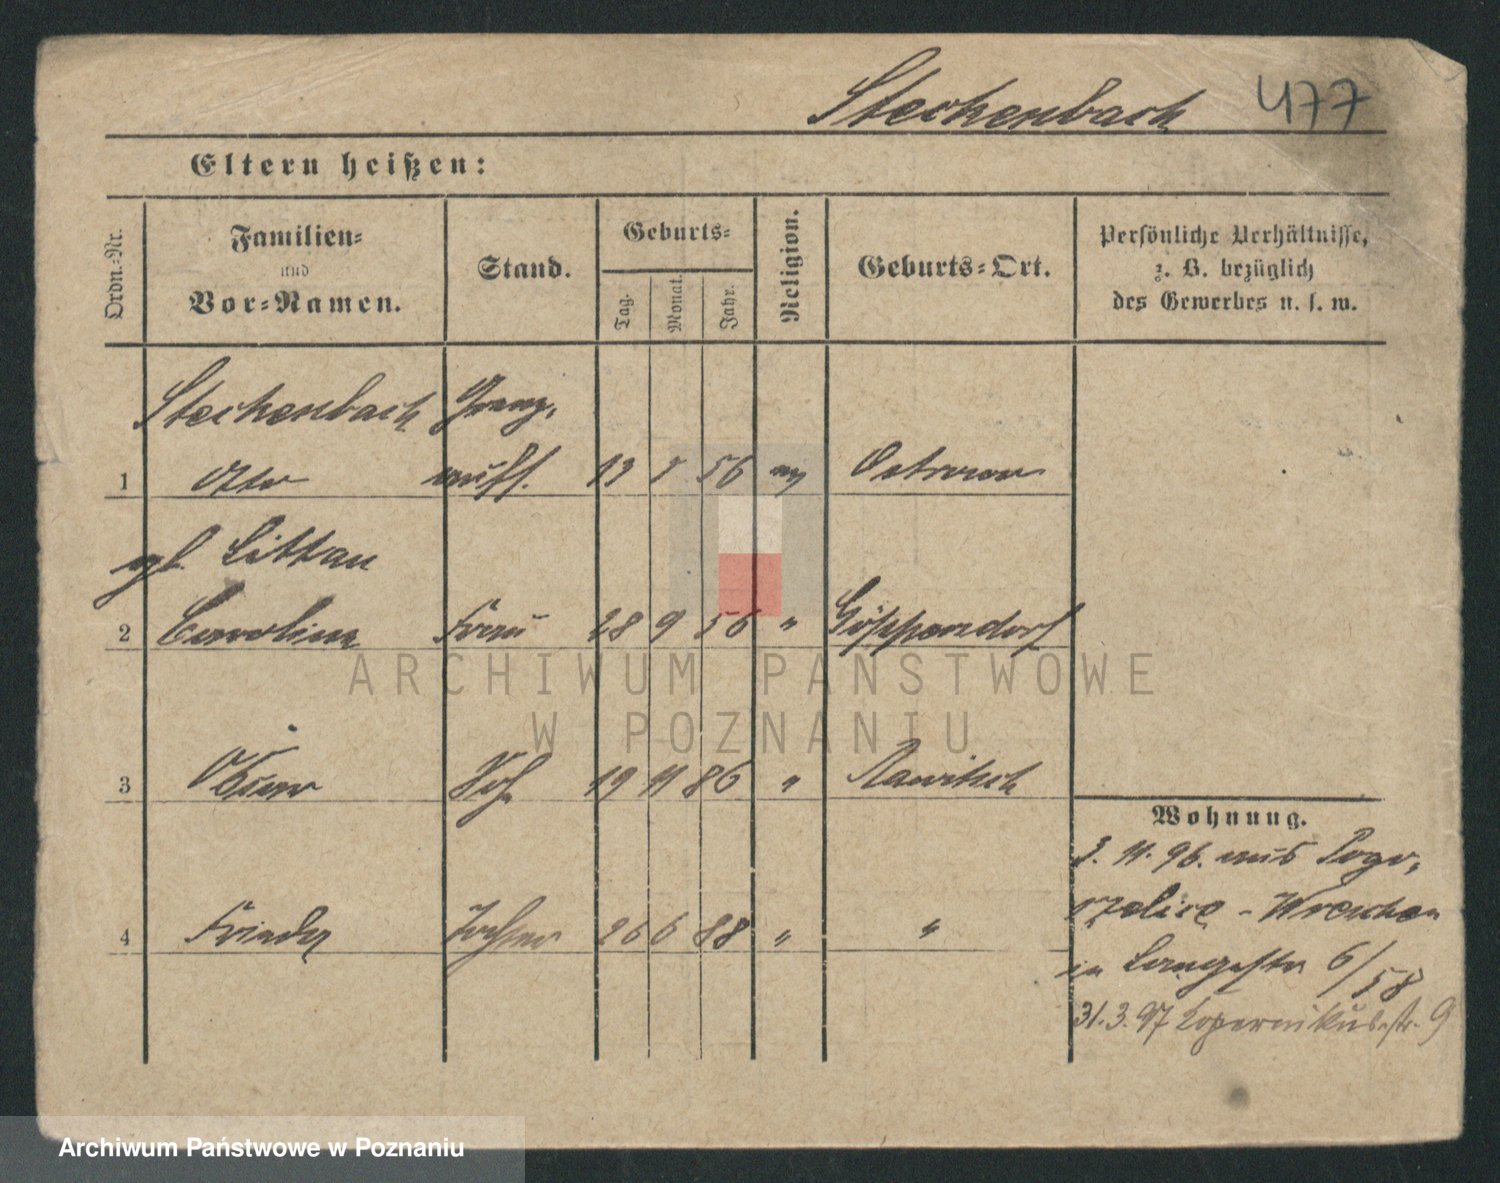 Steckenbach 477
Eltern heißen:
Ordn.-Nr.
Familien-
und
Vor-Namen.
Stand.
Geburts-
Tag.
Monat.
Jahr.
Religion.
Geburts-Ort.
Persönliche Verhältnisse,
z. B. bezüglich
des Gewerbes u. s. w.
Steckenbach Grenz-
1 Otto aufs. 56 Ostrowo
gb. Littau
2 Caroline Frau 28 9 56 "
3 19 11 86 " Rawitsch
4 Tochter 26 6 88 " "
Wohnung.
3. 11. 96. aus Pogo-
rzelice - Wreschen
in Langestr 6/58
31.3.97 Kopernikus-str. 9
ARCHIWUM PAŃSTWOWE
W POZNANIU
Archiwum Państwowe w Poznaniu